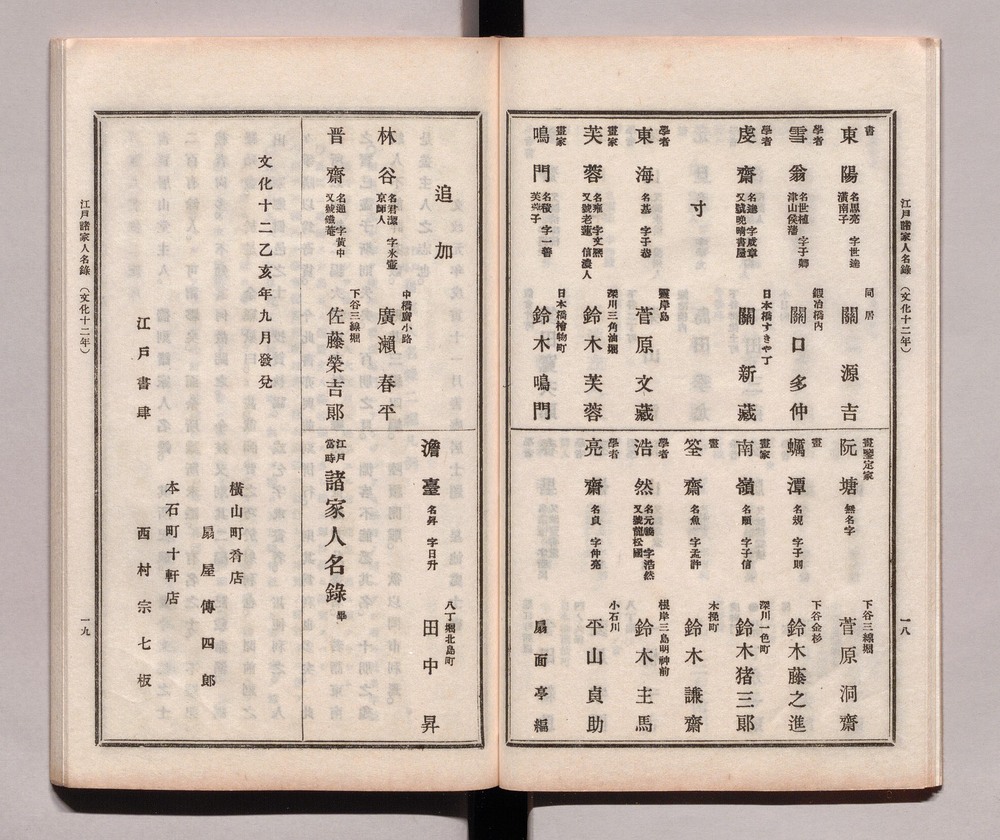 江戸諸家人名錄（文化十二年）
一八
書
東陽 名思亮 字世逵
潢南子
同居
關源吉
學者
雪翁 名世植 字子卿
津山侯藩
鍛冶橋内
關口多仲
學者
虔齋 名達 字成章
又號晩晴書屋
日本橋すきや丁
關新藏
寸
學者
東海 名基 字子恭
靈岸島
菅原文藏
畫家
芙蓉 名雍 字文熈
又號老蓮 信濃人
深川三角油堀
鈴木芙蓉
畫家
鳴門 名積 字一善
芙蓉子
日本橋檜物町
鈴木鳴門
畫鑒定家
阮塘 無名字
下谷三線堀
菅原洞齋
畫
蠣潭 名規 字子則
下谷金杉
鈴木藤之進
畫家
南嶺 名順 字子信
深川一色町
鈴木猪三郎
畫
筌齋 名魚 字孟許
木挽町
鈴木謙齋
學者
浩然 名元鶴 字浩然
又號龍松園
根岸三島明神前
鈴木主馬
學者
亮齋 名良 字仲亮
小石川
平山貞助
扇面亭編
追加
林谷 名君潔 字氷壷
京師人
中橋廣小路
廣瀬春平
晋齋 名通 字黄中
又號懺菴
下谷三線堀
佐藤榮吉郎
文化十二乙亥年九月發兌
江戸書肆
澹臺 名昇 字日升
八丁堀北島町
田中昇
江戸
當時
諸家人名錄 畢
橫山町肴店
扇屋傳四郎
本石町十軒店
西村宗七板
江戸諸家人名錄（文化十二年）
一九